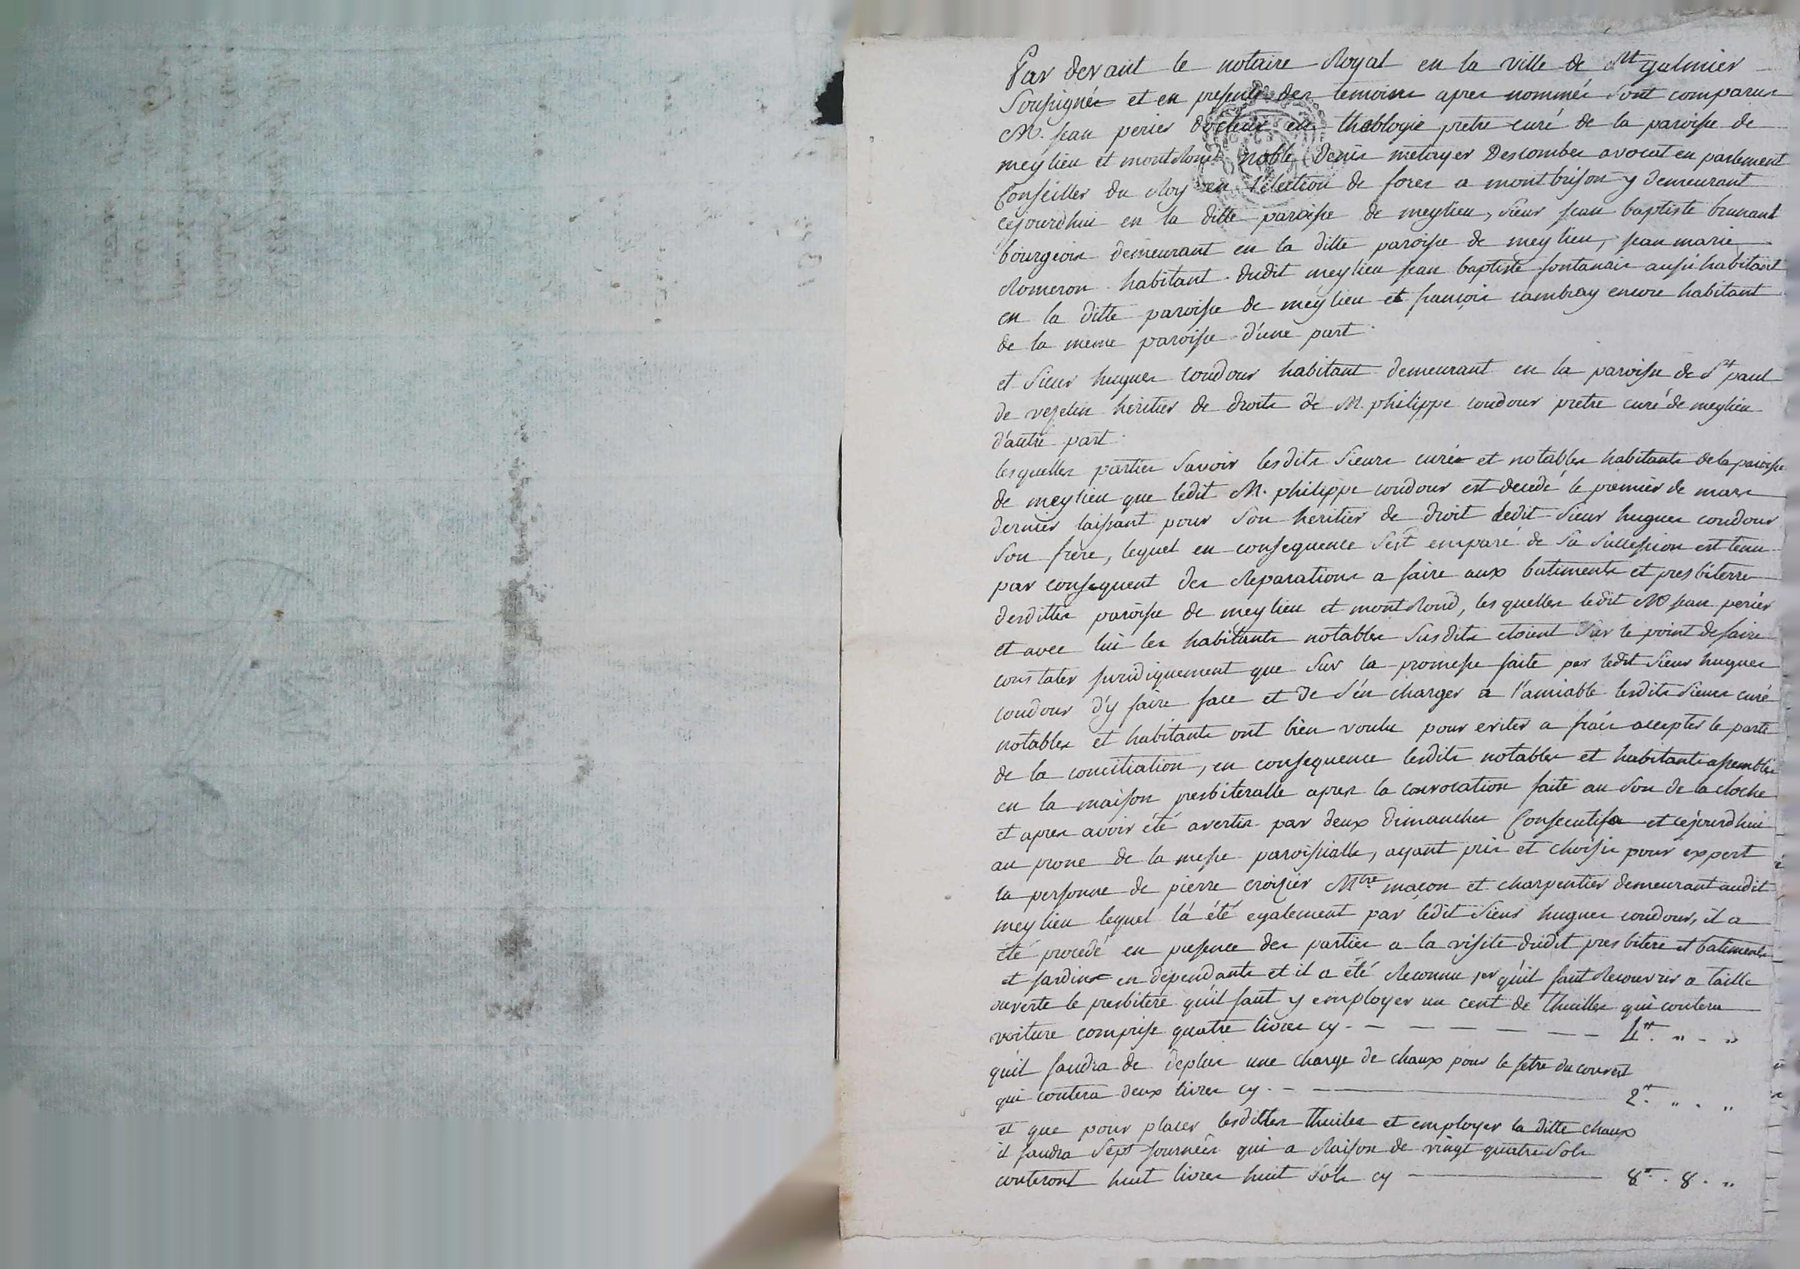 Par devant le notaire Royal en la ville de St galmier
Soussignée et en presence des temoins apres nommés sont comparus
M. jean perier docteur en theologie pretre curé de la paroisse de
meylieu et montrond noble denis métayer Descombes avocat en parlement
Conseiller du Roy en l'election de forez a montbrison y demeurant
cejourdhui en la ditte paroisse de meylieu, sieur jean baptiste brunant
bourgeois demeurant en la ditte paroisse de meylieu, jean marie
Romeron habitant dudit meylieu jean baptiste fontanais aussi habitant
en la ditte paroisse de meylieu et françois cambray encore habitant
de la meme paroisse d'une part.
et sieur hugues coudour habitant demeurant en la paroisse de St paul
de vezelin heritier de droits de M. philippe coudour pretre curé de meylieu
d'autre part.
lesquelles parties savoir lesdits sieurs curés et notables habitants de la paroisse
de meylieu que ledit M. philippe coudour est decedé le premier de mars
dernier laissant pour son heritier de droit ledit sieur hugues coudour
son frere, lequel en consequence s'est emparé de sa succession est tenu
par consequent des Reparations a faire aux batiments et presbiterre
desdittes paroisse de meylieu et montrond, lesquelles ledit Mr jean perier
et avec lui les habitants notables susdits etoient sur le point de faire
constater juridiquement que sur la promesse faite par ledit sieur hugues
coudour d'y faire face et de s'en charger a l'amiable lesdits sieurs curé
notables et habitants ont bien voulu pour eviter a frais accepter le parte
de la conciliation, en consequence lesdits notables et habitants assemblés
en la maison presbiteralle apres la convocation faite au son de la cloche
et apres avoir été avertis par deux dimanches Consecutifs et cejourdhui
au prone de la messe paroissialle, ayant pris et choisis pour expert
la personne de pierre croisier Mtre maçon et charpentier demeurant audit
meylieu lequel l'a été egalement par ledit sieur hugues coudour, il a
été procedé en presence des parties a la visite dudit presbitere et batiments
et jardins en dependants et il a été Reconnu 1er qu'il faut Recouvrir a taille
ouverte le presbitere qu'il faut y employer un cent de thuilles qui coutera
voiture comprise quatre livres cy - - - - - - 4tt. " - "
qu'il faudra de deplus une charge de chaux pour le fetre du couvert
qui coutera deux livres cy - - 2tt. " . "
et que pour placer lesdittes thuiles et employer la ditte chaux
il faudra sept journées qui a Raison de vingt quatre sols
couteront huit livres huit sols cy - 8tt. 8. "